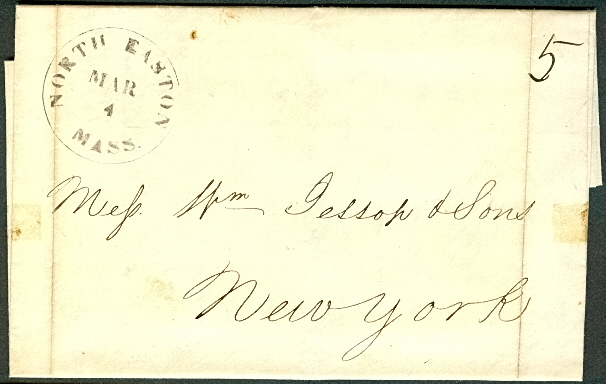 NORTH EASTON
MAR
4
MASS.
5
Mess. Wm Jessop & Sons
New York